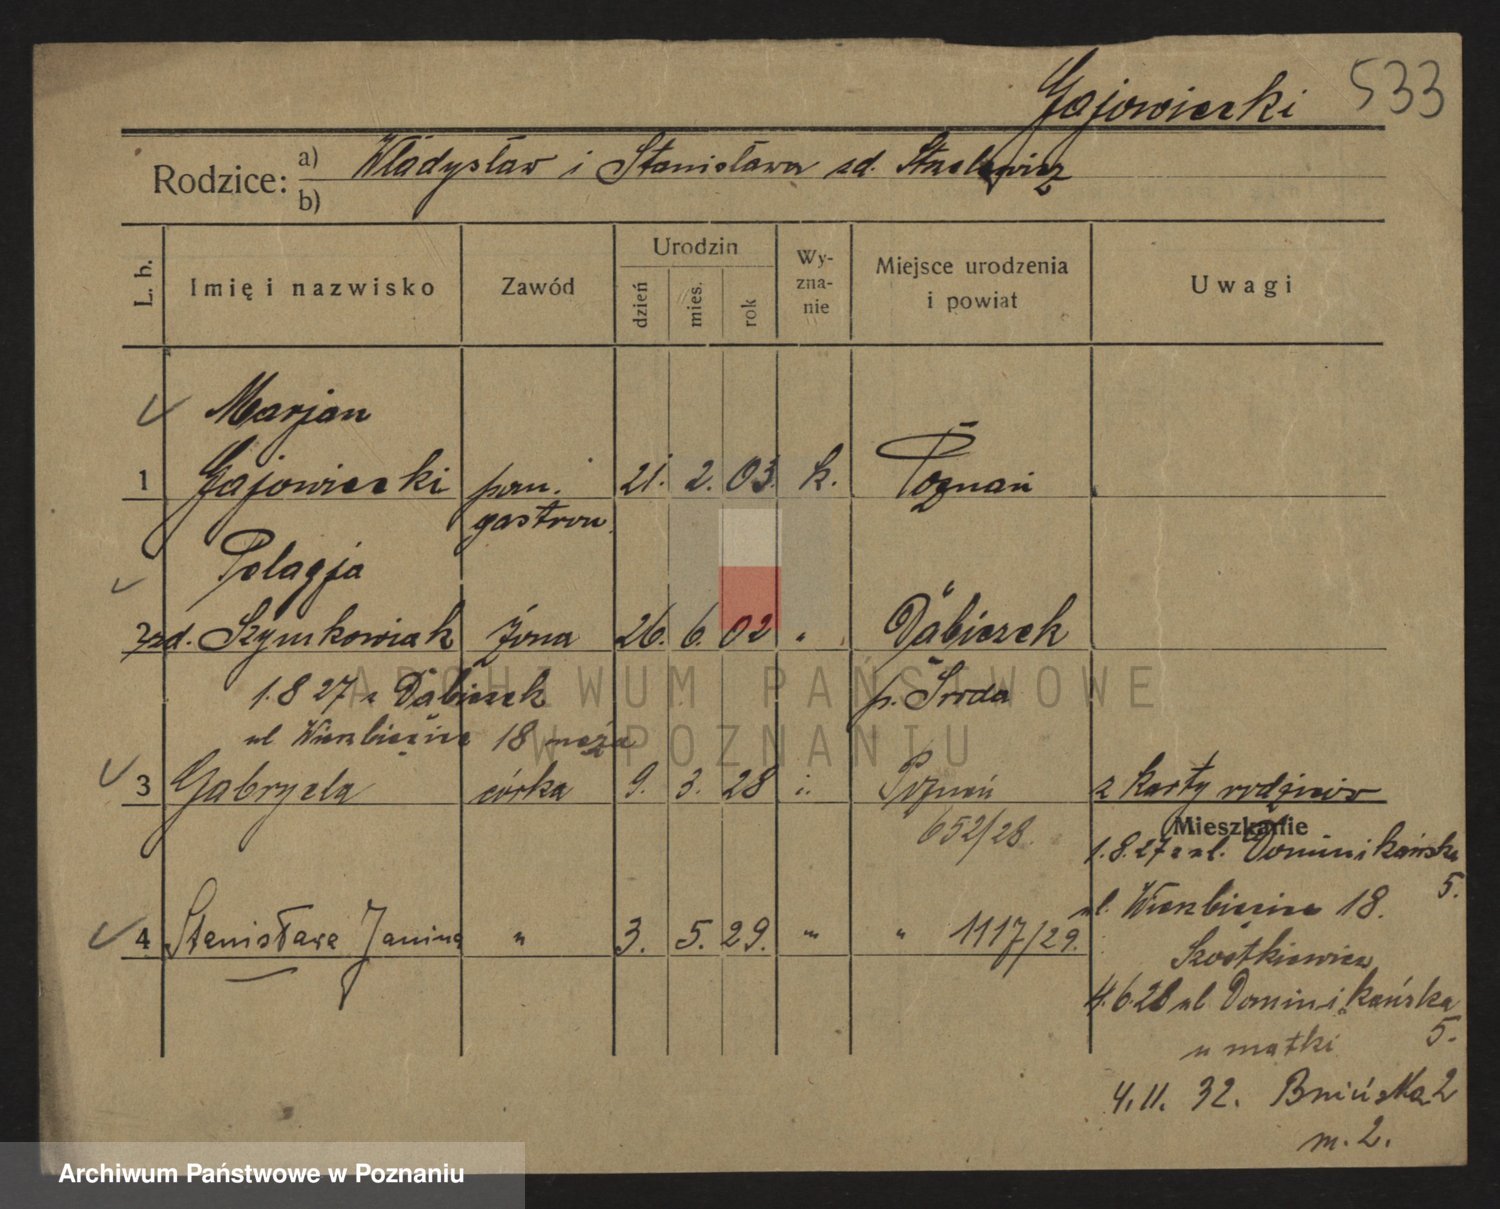 Gajowiecki 533
Rodzice: a) Władysław i Stanisława zd.
b)
L. b. Imię i nazwisko Zawód Urodzin dzień mies. rok Wy-zna-nie Miejsce urodzenia i powiat Uwagi
Marjan
1 Gajowiecki pom. 21. 2. 03. k. Poznań
gastron.
Pelagja
2 zd. Szymkowiak żona 26. 6. 02 " Dąbiczek
1.8 27 z Dąbiczek p. Środa
ul Wierzbięcice 18 męża
3 Gabryela córka 9. 3. 28 " Poznań z karty rodziców
652/28.
Mieszkanie
1.8.27 z ul. Dominikańska
5.
ul. Wierzbięcice 18.
4 Stanisława Janina " 3. 5. 29. " " 1117/29.
Szostkiewicz
4.6.28 ul Dominikańska
5.
u matki
4.11. 32. Bnińska 2
m. 2.
ARCHIWUM PAŃSTWOWE
W POZNANIU
Archiwum Państwowe w Poznaniu